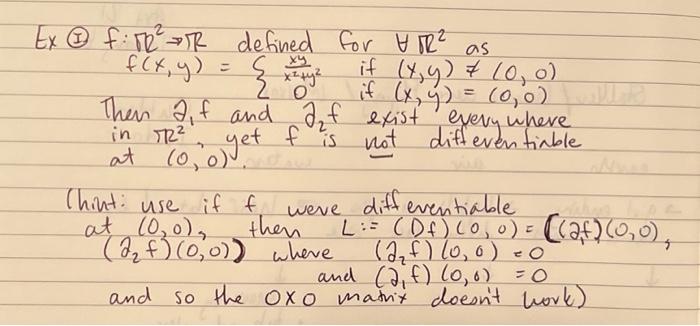 Ex ① f: ℝ² → ℝ defined for ∀ ℝ² as
f(x,y) = { xy/x²+y² if (x,y) ≠ (0,0)
{ 0 if (x,y) = (0,0)
Then ∂₁f and ∂₂f exist everywhere
in ℝ², yet f is not differentiable
at (0,0).
(hint: use if f were differentiable
at (0,0), then L := (Df)(0,0) = [(∂₁f)(0,0),
(∂₂f)(0,0)) where (∂₂f)(0,0) = 0
and (∂₁f)(0,0) = 0
and so the 0X0 matrix doesn't work)